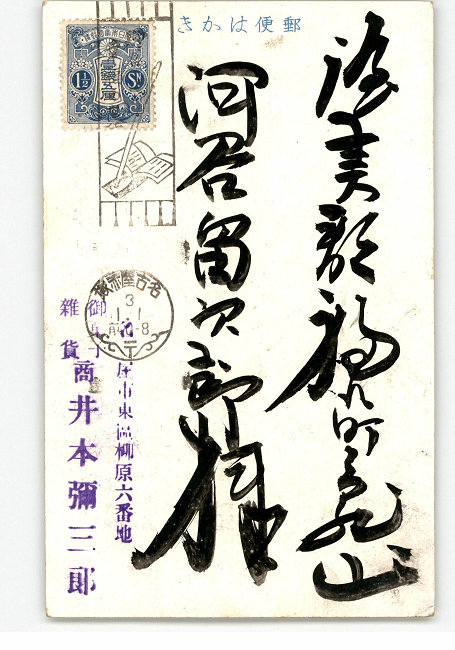 郵便はかき
壹錢五厘
1½ Sn
渥美郡福江町亀山
河合留次郎様
名古屋
3
1.1
前0-8
屋市東區柳原六番地
御菓子
雜貨
商井本彌三郎